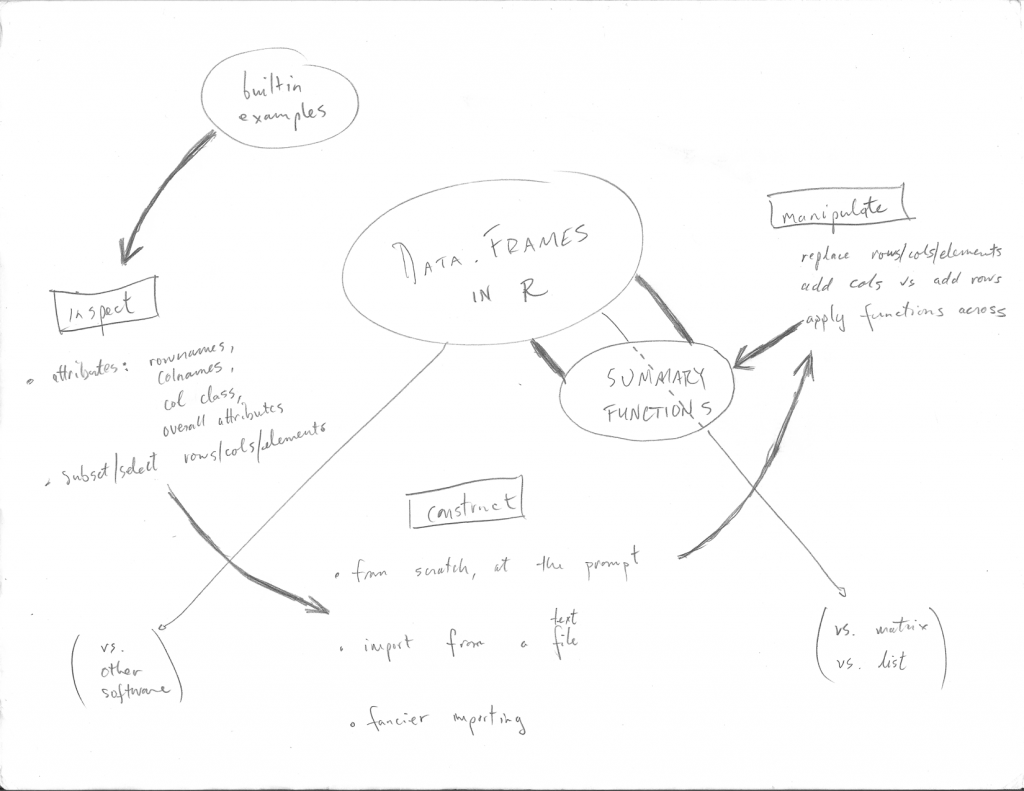 builtin
examples
DATA.FRAMES
IN R
manipulate
replace rows/cols/elements
add cols vs add rows
apply functions across
inspect
• attributes: rownames,
colnames,
col class,
overall attributes
• subset/select rows/cols/elements
SUMMARY
FUNCTIONS
construct
• from scratch, at the prompt
text
• import from a file
• fancier importing
(vs.
other
software)
(vs. matrix
vs. list)